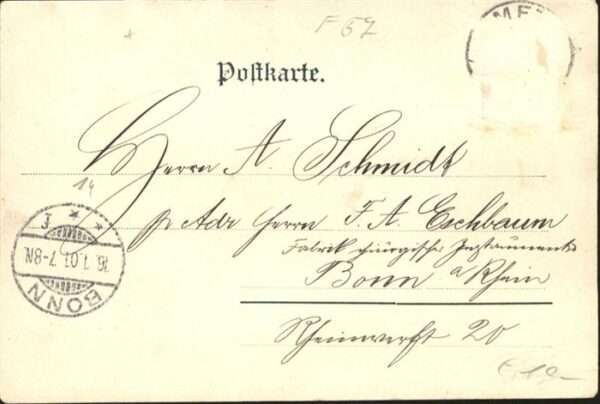 F 57
ME
Postkarte.
Herrn A. Schmidt
14
p Adr Herrn F. A. Eschbaum
Fabrik chirurgische Instrumente
Bonn a Rhein
Rheinwerft 20
BONN
16.1.01.7-8N.
* * f
€ 19,-